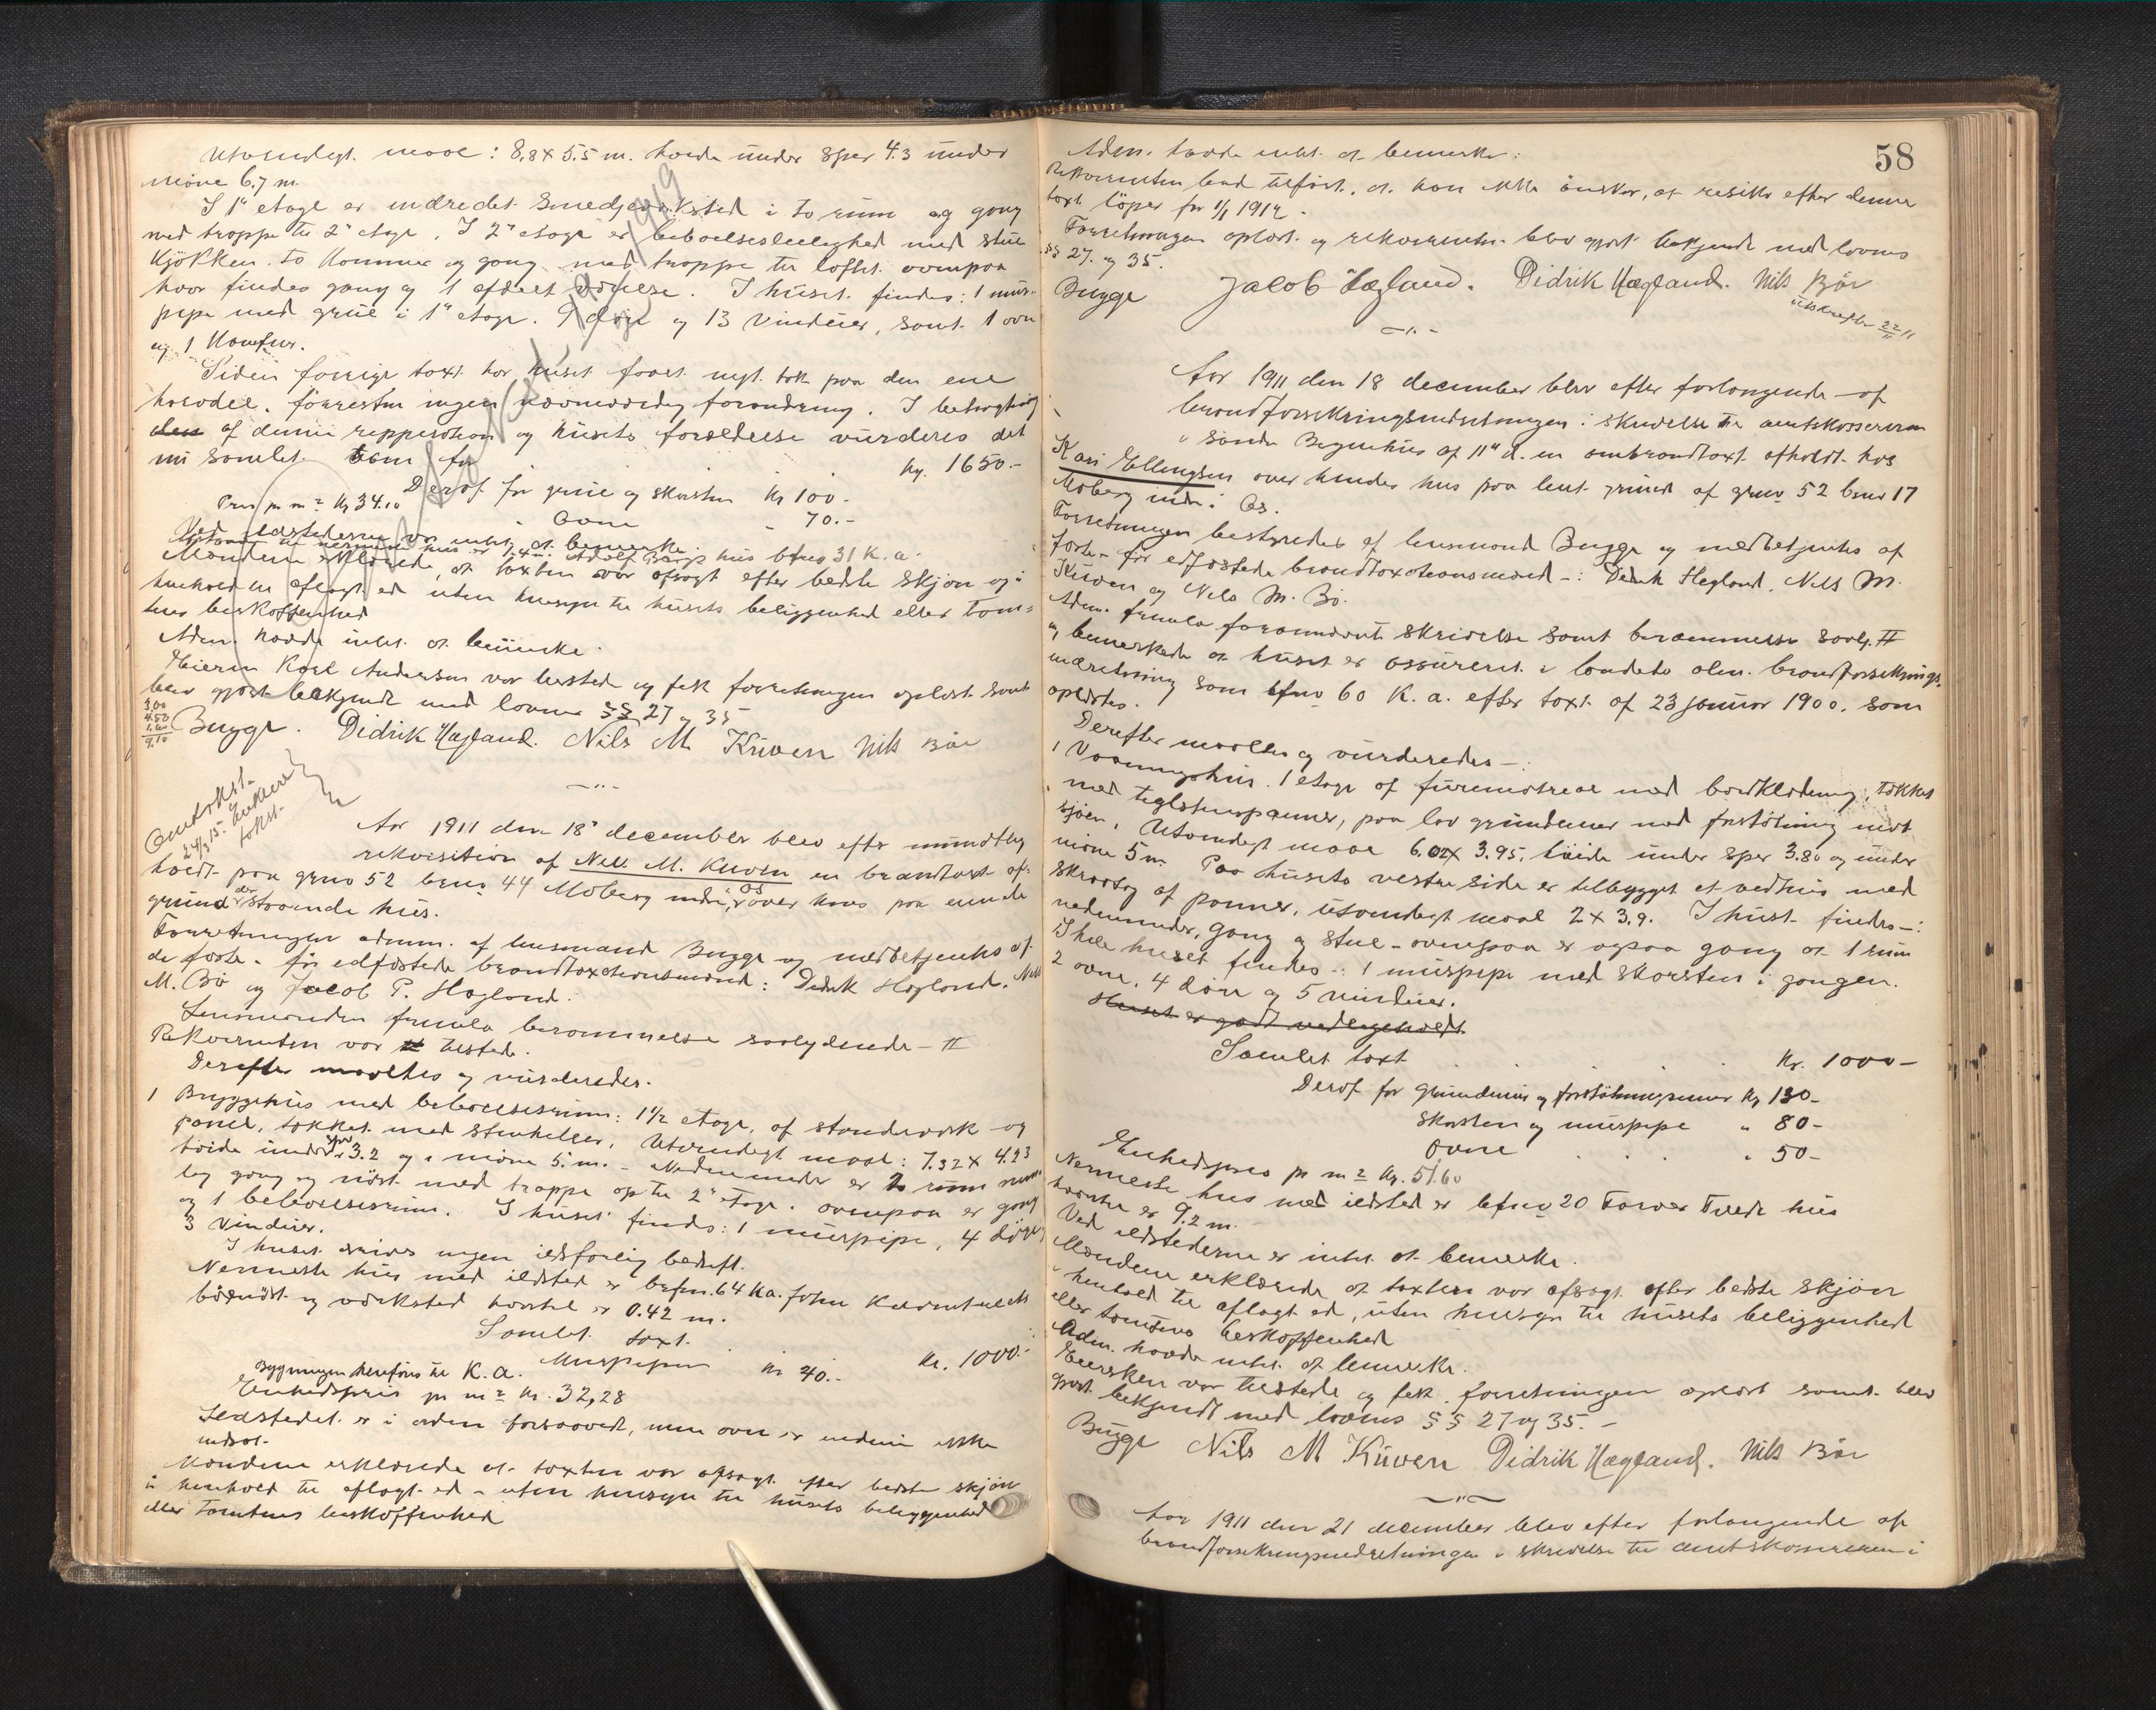 Utvendigt maal: 8,8 x 5.5 m. høide under sper 4.3 under
møne 6,7 m.
I 1ste etage er indredet Smedjeverksted i to rum og gang
med trappe til 2den etage. I 2den etage er beboelsesleilighed med stue
Kjøkken. to Kammer og gang med trappe til loftet. ovenpaa
hvor findes gang og 1 afdelt værelse. I huset findes: 1 mur-
pipe med grue i 1ste etage. 9 døre og 13 vinduer, samt 1 ovn
og 1 Komfur.
Siden forrige taxt har huset faaet nyt tak paa den ene
halvdel. forresten ingen nævneværdig forandring. I betragtning
af denne repperation og husets forældelse vurderes det
nu samlet for kr. 1650.-
Deraf for grue og skorsten kr 100-
Pris pr m² kr 34.10 Ovne " 70.-
Ved ildstederne var intet at bemerke.
Mændene erklærede, at taxten var afsagt efter bedste skjøn og i
henhold til aflagt ed uten hensyn til husets beliggenhed eller tom-
tens beskaffenhed
Adm. havde intet at bemerke.
Eieren Karl Andersen var tilstede og fik forretningen oplæst samt
blev gjort bekjendt med lovens §§ 27 og 35
3,00
4.50
1.60
9.10
Bugge. Didrik Hægland. Nils M Kuven Nils Bøe
Omtakst
24/3 15.
takst.
Aar 1911 den 18de december blev efter mundtlig
rekvisition af Nils M. Kuven en brandtaxt af-
holdt paa grno 52 brno 44 Moberg indre i Os over hans paa eiende
grund derstaaende hus.
Forretningen admin. af lensmand Bugge og medbetjentes af
de faste - før edfæstede brandtaxationsmænd: Didrik Hægland. Nils
M. Bø og Jacob P. Hægland.
Lensmanden fremla berammelse saalydende - #
Rekvirenten var tilstede.
Derefter maaltes og vurderedes.
1 Bryggehus med beboelsesrum: 1½ etage, af standerverk og
panel, tækket med stenheller. Utvendigt maal: 7.32 x 4.23
høide under sper 3.2 og " møne 5. m. - Nedenunder er 2 rum nem-
lig gang og nøst med trappe op til 2den etage. ovenpaa er gang
og 1 beboelsesrum. I huset findes: 1 murpipe, 4 døre,
3 vinduer.
I huset drives ingen ildsfarlig bedrift.
Nermeste hus med ildsted er brfno. 64 Ka. John
baadnøst og verksted havstel er 0.42 m.
Samlet taxt. kr. 1000.-
Murpipen kr 40.-
Bygningen henføres til K. a.
Enhedspris pr m² kr. 32,28
Ildstedet er i orden forsaavidt, men ovn er endnu ikke
indsat.
Mændene erklærede at taxten var afsagt efter bedste skjøn
i henhold til aflagt ed - uten hensyn til husets beliggenhed
eller tomtens beskaffenhed
58
Adm. havde intet at bemerke.
Rekvirenten lod tilført, at han ikke ønsker, at risiko efter denne
taxt løper før 1/1 1912.
Forretningen oplæst og rekvirenten blev gjort bekjendt med lovens
§§ 27. og 35.
Bugge Jacob Hægland. Didrik Hægland. Nils Bøe
Aar 1911 den 18 december blev efter forlangende af
brandforsikringsindretningen i skrivelse til amtskasserern
i søndre Bergenhus af 11te d. m. ombrandtaxt afholdt hos
Kari Ellingsen over hendes hus paa leiet grund af grno 52 brno 17
Moberg indre i Os.
Forretningen bestyredes af lensmand Bugge og medbetjentes af
faste - før edfæstede brandtaxationsmænd -: Didrik Hegland, Nils M.
Kuven og Nils M. Bø.
Adm. fremla foranævnte skrivelse samt berammelse saalyd. #
og bemerkede at huset er assureret i landets alm. brandforsikrings-
indretning som brfno 60 K. a. efter taxt af 23 januar 1900, som
oplæstes.
Derefter maaltes og vurderedes -:
1 Vaaningshus. 1 etage af furematerial med bordklædning, tækket
med teglstenspanner, paa lav grundmur med forstøtning mot
sjøen. Utvendigt maal 6.02 x 3.95. høide under sper 3.80 og under
møne 5 m. Paa husets vestre side er tilbygget et vedhus med
skraatag af panner, utvendigt maal 2 x 3.9. I huset findes -:
nedenunder, gang og stue - ovenpaa er ogsaa gang og 1 rum
I hele huset findes -: 1 murpipe med skorsten i gangen.
2 ovne, 4 døre og 5 vinduer.
Huset er godt vedligeholdt.
Samlet taxt . . . kr. 1000-
Deraf for grundmur og forstøtningsmur kr 130-
Skorsten og murpipe " 80-
Ovne . . . " 50-
Enhedspris pr m² kr. 51.60
Nermeste hus med ildsted er brfno 20 hus
9.2 m.
Ved ildstederne er intet at bemerke.
Mændene erklærede at taxten var afsagt efter bedste skjøn
i henhold til aflagt ed, uten hensyn til husets beliggenhed
eller tomtens beskaffenhed
Adm. havde intet at bemerke.
Eiersken var tilstede og fik forretningen oplæst samt blev
gjort bekjendt med lovens §§ 27 og 35. -
Bugge Nils M Kuven Didrik Hægland. Nils Bøe
Aar 1911 den 21 december blev efter forlangende af
brandforsikringsindretningen i skrivelse til amtskasereren i